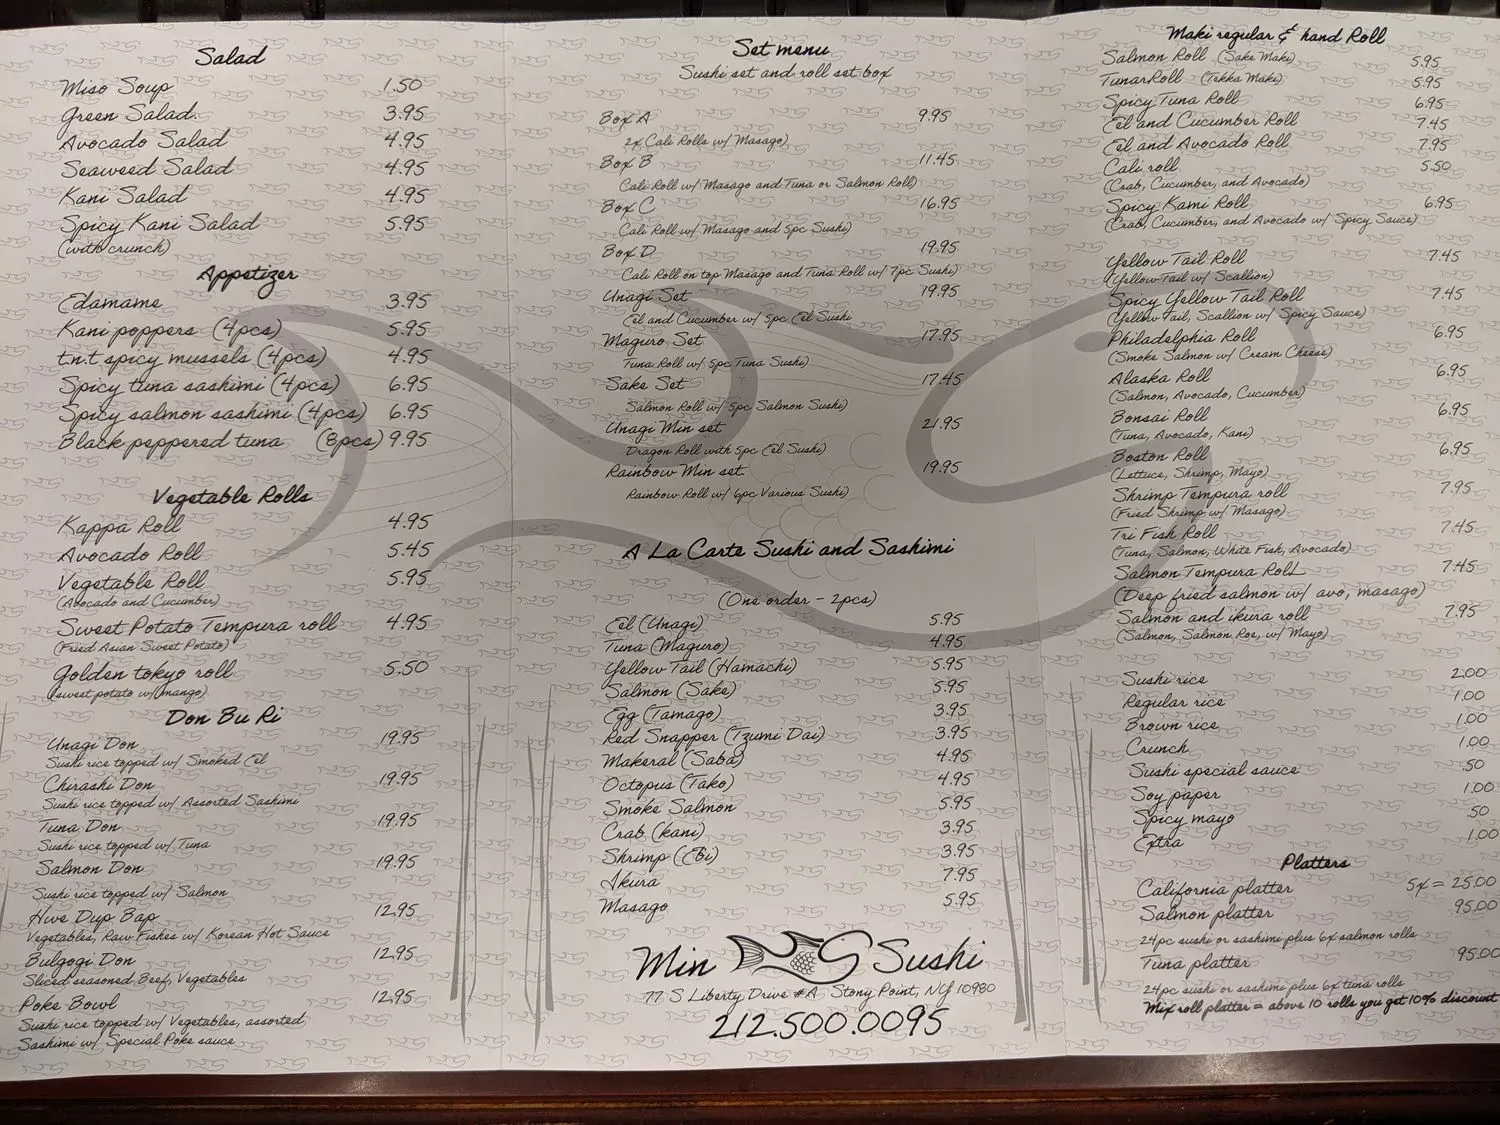 Salad
Miso Soup 1.50
Green Salad. 3.95
Avocado Salad 4.95
Seaweed Salad 4.95
Kani Salad 4.95
Spicy Kani Salad 5.95
(with crunch)
Appetizer
Edamame 3.95
Kani poppers (4pcs) 5.95
t.n.t spicy mussels (4pcs) 4.95
Spicy tuna sashimi (4pcs) 6.95
Spicy salmon sashimi (4pcs) 6.95
Black peppered tuna (8pcs) 9.95
Vegetable Rolls
Kappa Roll 4.95
Avocado Roll 5.45
Vegetable Roll 5.95
(Avocado and Cucumber)
Sweet Potato Tempura roll 4.95
(Fried Asian Sweet Potato)
Golden tokyo roll 5.50
(sweet potato w/mango)
Don Bu Ri
Unagi Don 19.95
Sushi rice topped w/ Smoked Eel
Chirashi Don 19.95
Sushi rice topped w/ Assorted Sashimi
Tuna Don 19.95
Sushi rice topped w/ Tuna
Salmon Don 19.95
Sushi rice topped w/ Salmon
Hwe Dup Bap 12.95
Vegetables, Raw Fishes w/ Korean Hot Sauce
Bulgogi Don 12.95
Sliced seasoned Beef, Vegetables
Poke Bowl 12.95
Sushi rice topped w/ Vegetables, assorted
Sashimi w/ Special Poke sauce
Set menu
Sushi set and roll set box
Box A 9.95
2x Cali Rolls w/ Masago)
Box B 11.45
Cali Roll w/ Masago and Tuna or Salmon Roll)
Box C 16.95
Cali Roll w/ Masago and 5pc Sushi)
Box D 19.95
Cali Roll on top Masago and Tuna Roll w/ 7pc Sushi)
Unagi Set 19.95
Eel and Cucumber w/ 5pc Eel Sushi
Maguro Set 17.95
Tuna Roll w/ 5pc Tuna Sushi)
Sake Set 17.45
Salmon Roll w/ 5pc Salmon Sushi)
Unagi Min set 21.95
Dragon Roll with 5pc Eel Sushi)
Rainbow Min set 19.95
Rainbow Roll w/ 6pc Various Sushi)
A La Carte Sushi and Sashimi
(One order - 2pcs)
Eel (Unagi) 5.95
Tuna (Maguro) 4.95
Yellow Tail (Hamachi) 5.95
Salmon (Sake) 5.95
Egg (Tamago) 3.95
Red Snapper (Izumi Dai) 3.95
Makeral (Saba) 4.95
Octopus (Tako) 4.95
Smoke Salmon 5.95
Crab (kani) 3.95
Shrimp (Ebi) 3.95
Ikura 7.95
Masago 5.95
Min Sushi
77 S Liberty Drive #A Stony Point, NY 10980
212.500.0095
Maki regular & hand Roll
Salmon Roll (Sake Maki) 5.95
TunarRoll (Tekka Maki) 5.95
Spicy Tuna Roll 6.95
Eel and Cucumber Roll 7.45
Eel and Avocado Roll 7.95
Cali roll 5.50
(Crab, Cucumber, and Avocado)
Spicy Kami Roll 6.95
(Crab, Cucumber, and Avocado w/ Spicy Sauce)
Yellow Tail Roll 7.45
(Yellow Tail w/ Scallion)
Spicy Yellow Tail Roll 7.45
(Yellow Tail, Scallion w/ Spicy Sauce)
Philadelphia Roll 6.95
(Smoke Salmon w/ Cream Cheese)
Alaska Roll 6.95
(Salmon, Avocado, Cucumber)
Bonsai Roll 6.95
(Tuna, Avocado, Kani)
Boston Roll 6.95
(Lettuce, Shrimp, Mayo)
Shrimp Tempura roll 7.95
(Fried Shrimp w/ Masago)
Tri Fish Roll 7.45
(Tuna, Salmon, White Fish, Avocado)
Salmon Tempura RolL 7.45
(Deep fried salmon w/ avo, masago)
Salmon and ikura roll 7.95
(Salmon, Salmon Roe, w/ Mayo)
Sushi rice 2.00
Regular rice 1.00
Brown rice 1.00
Crunch 1.00
Sushi special sauce .50
Soy paper 1.00
Spicy mayo .50
Extra 1.00
Platters
California platter 5x = 25.00
Salmon platter 95.00
24pc sushi or sashimi plus 6x salmon rolls
Tuna platter 95.00
24pc sushi or sashimi plus 6x tuna rolls
Mix roll platter = above 10 rolls you get 10% discount